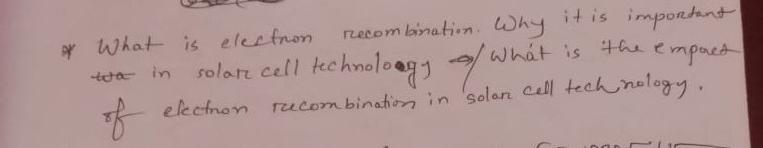 * What is electron recombination. Why it is important
in solar cell technology / What is the empact
of electron recombination in solar cell technology.